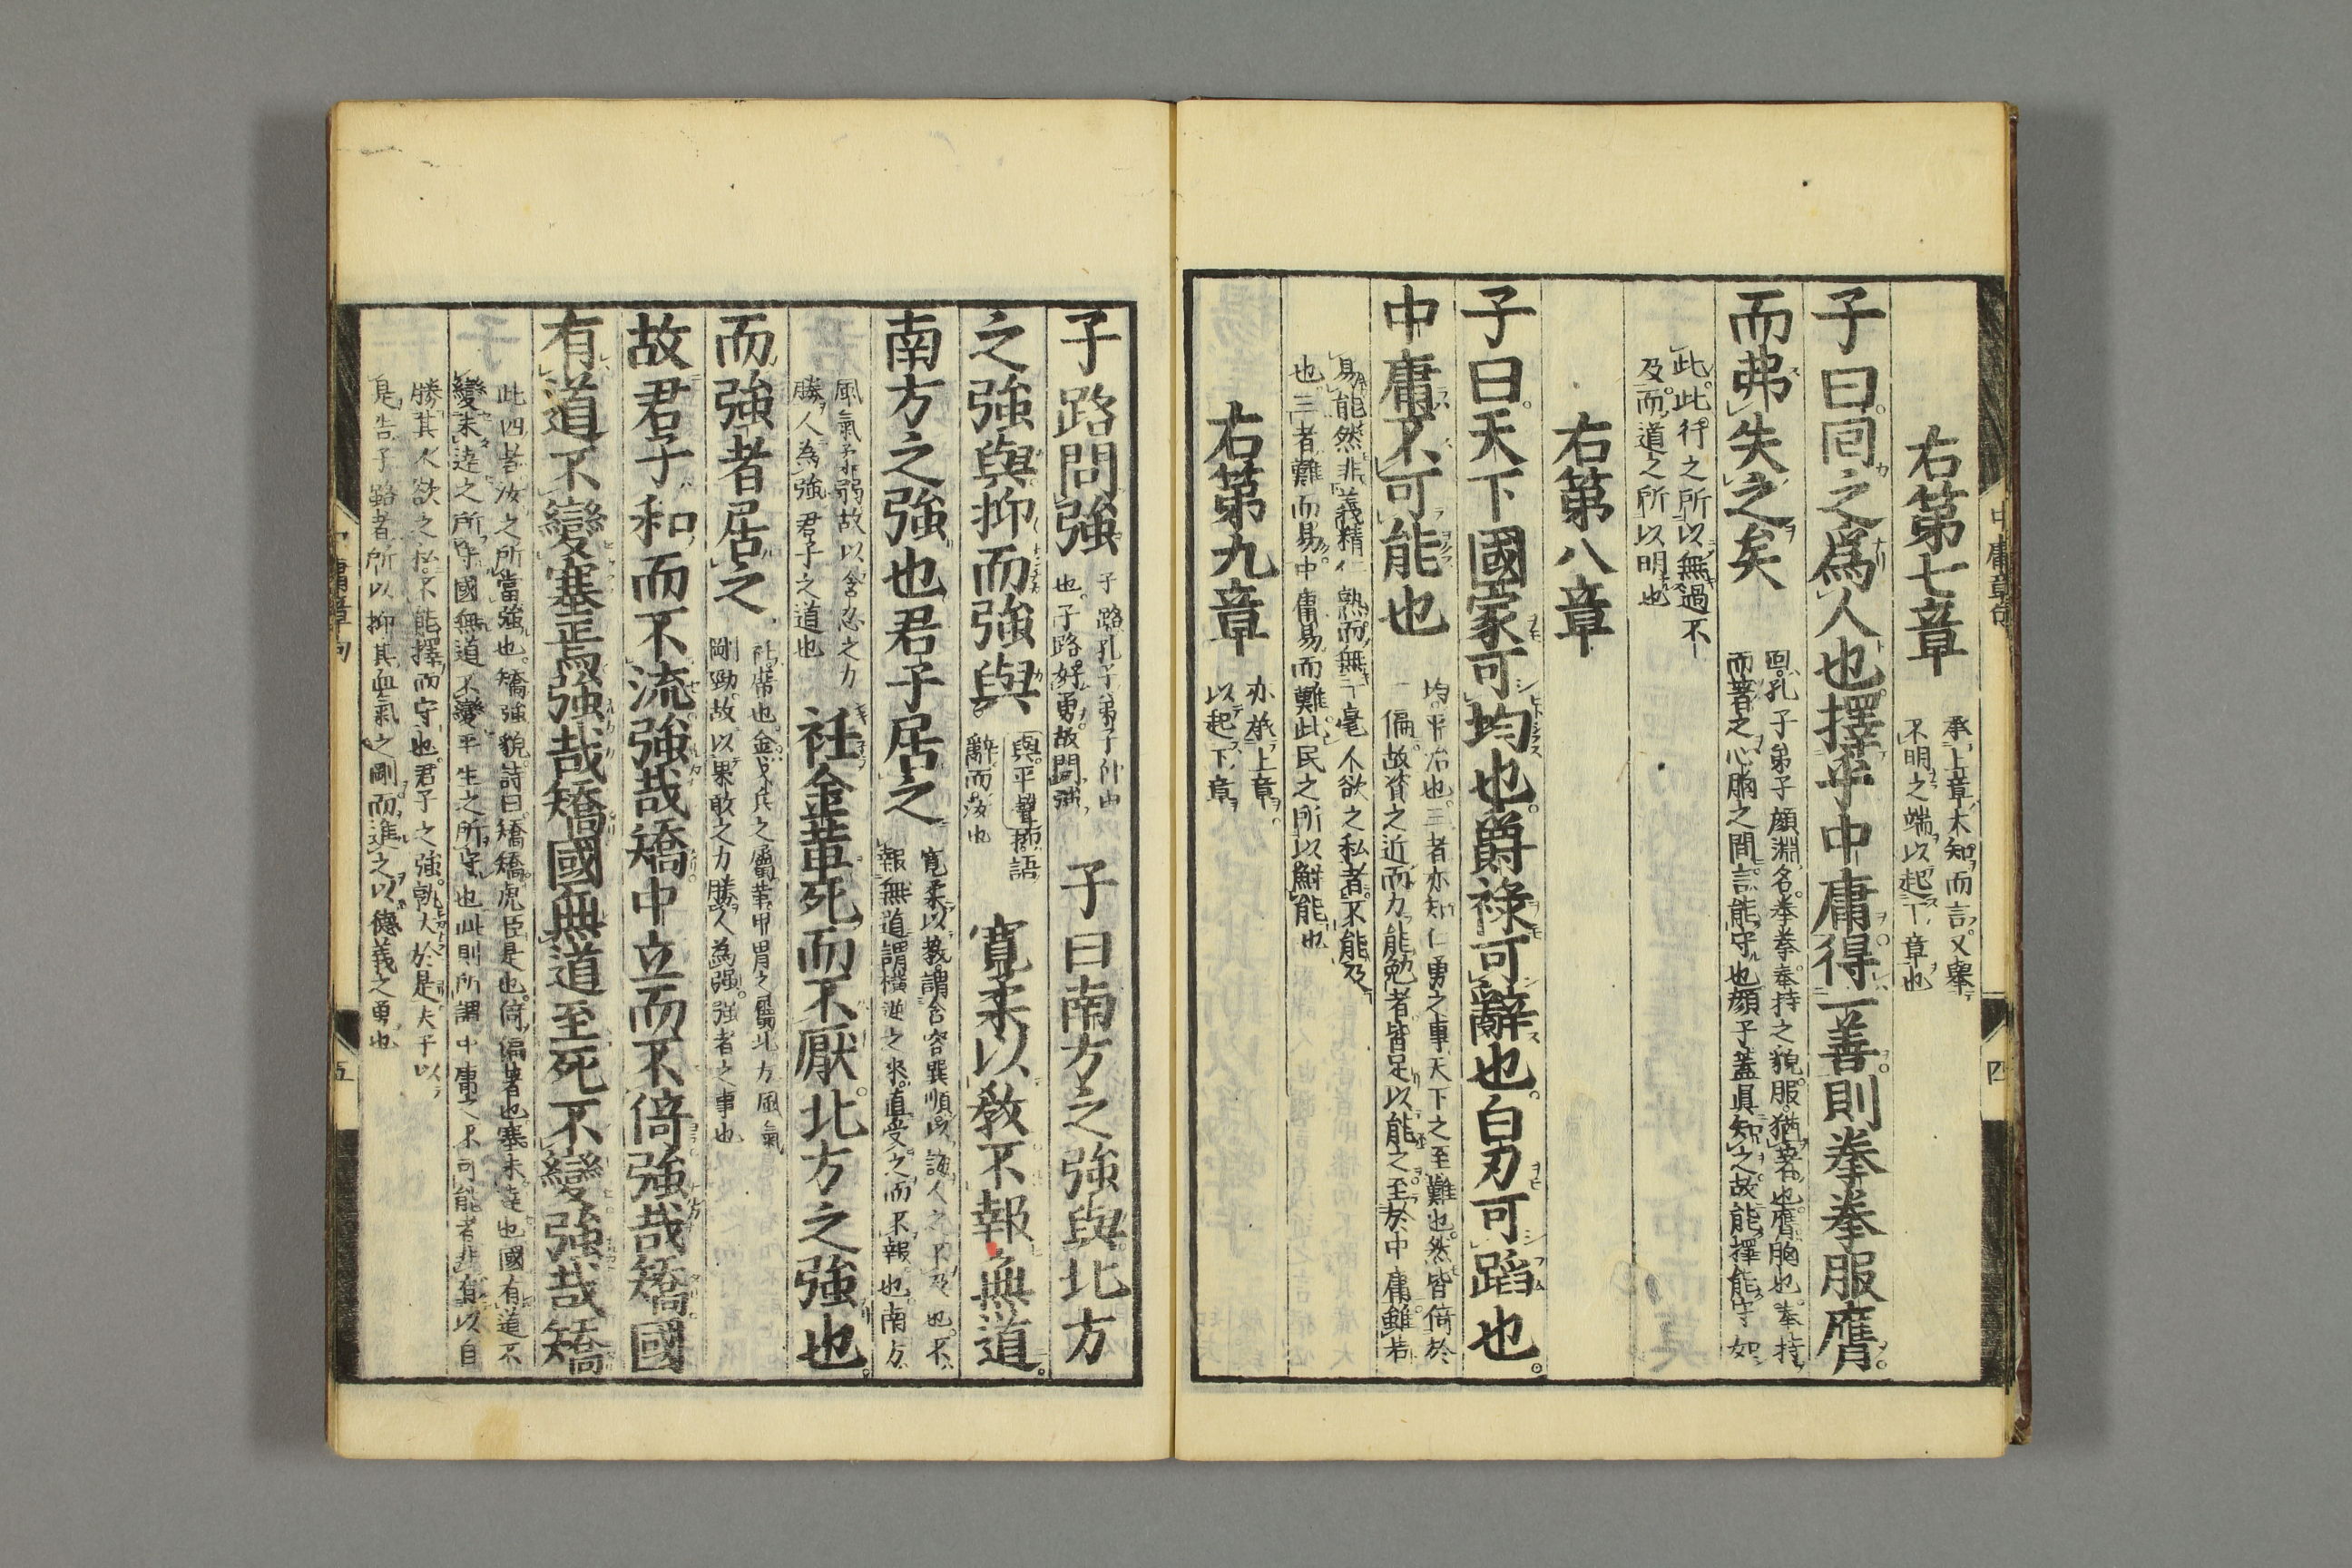 右第七章 承上章大知而言又擧
不明之端以起下章也
子曰回之爲人也擇乎中庸得一善則拳拳服膺
而弗失之矣 回孔子弟子顔淵名拳拳奉持之貌服猶著也膺胸也奉持
而著之心胸之間言能守也顔子蓋眞知之故能擇能守如
此此行之所以無過不
及而道之所以明也
右第八章
子曰天下國家可均也爵祿可辭也白刃可蹈也
中庸不可能也 均平治也三者亦知仁勇之事天下之至難也然皆倚於
一偏故資之近而力能勉者皆足以能之至於中庸雖若
易能然非義精仁熟而無一毫人欲之私者不能及
也三者難而易中庸易而難此民之所以鮮能也
右第九章 亦承上章
以起下章
中庸章句 四
子路問強 子路孔子弟子仲由
也子路好勇故問強
子曰南方之強與北方
之強與抑而強與 與平聲抑語
辭而汝也
寬柔以敎不報無道
南方之強也君子居之 寬柔以敎謂含容巽順以誨人之不及也不
報無道謂橫逆之來直受之而不報也南方
風氣柔弱故以含忍之力
勝人為強君子之道也
衽金革死而不厭北方之強也
而強者居之 衽席也金戈兵之屬革甲冑之屬北方風氣
剛勁故以果敢之力勝人為強强者之事也
故君子和而不流強哉矯中立而不倚強哉矯國
有道不變塞焉強哉矯國無道至死不變強哉矯
此四者汝之所當強也矯強貌詩曰矯矯虎臣是也倚偏著也塞未達也國有道不
變未達之所守國無道不變平生之所守也此則所謂中庸之不可能者非有以自
勝其人欲之私不能擇而守也君子之強孰大於是夫子以
是告子路者所以抑其血氣之剛而進之以德義之勇也
中庸章句 五